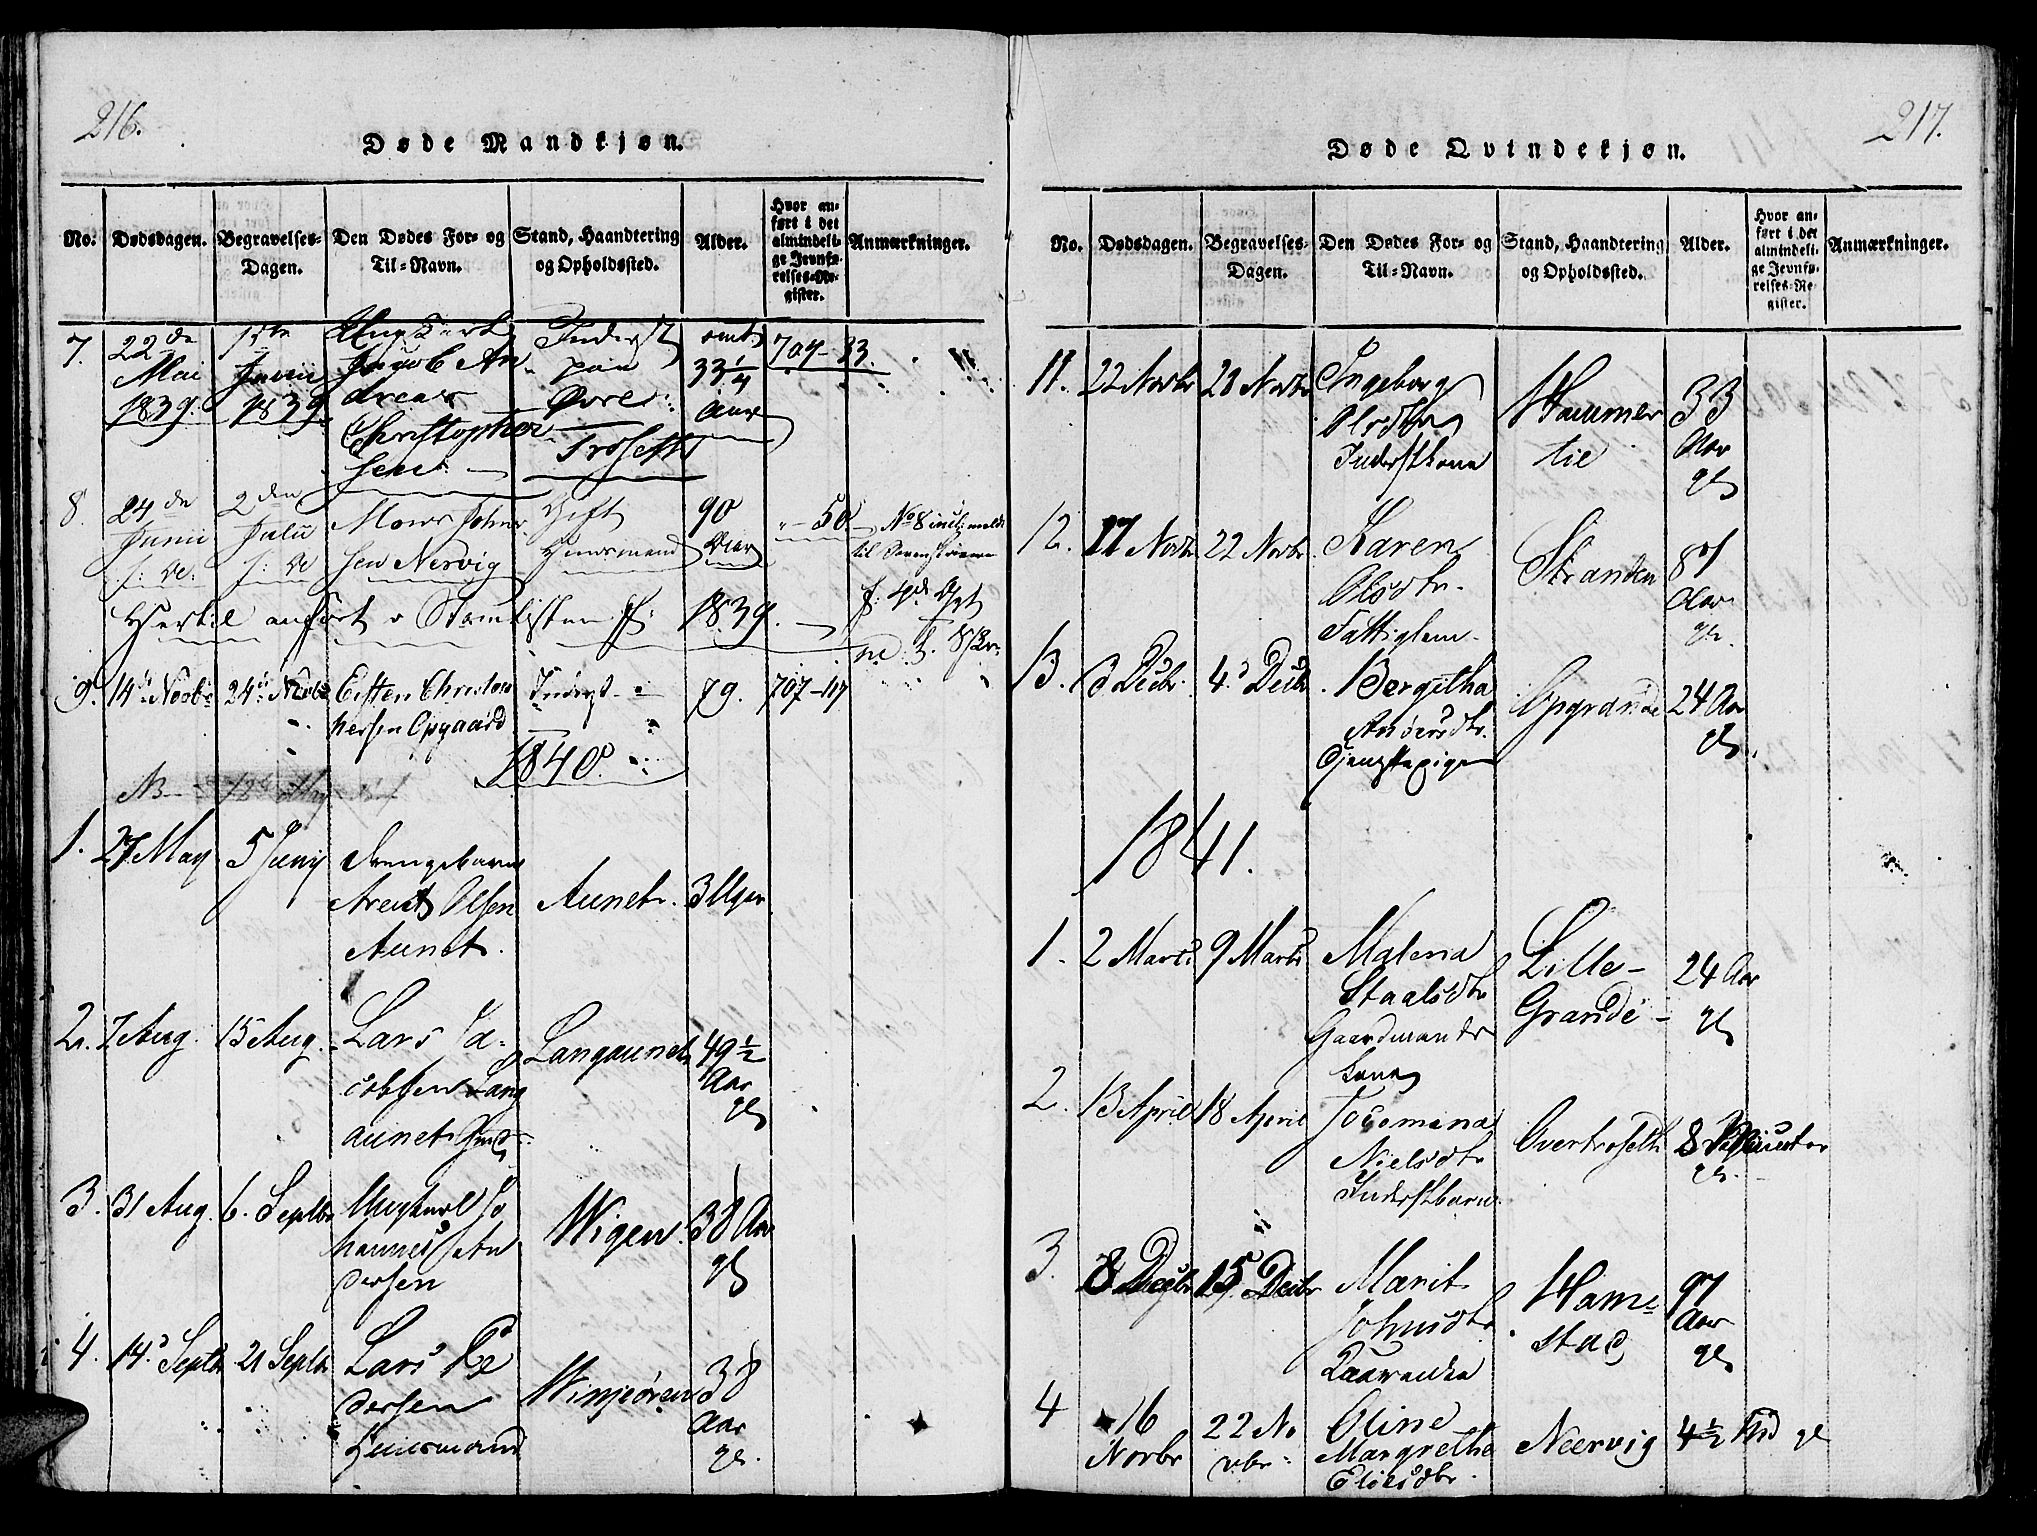 216.
Døde Mandkjøn.
No.
Dødsdagen.
Begravelses-
Dagen.
Den Dødes For- og
Til-Navn.
Stand, Haandtering
og Opholdssted.
Alder.
Hvor an-
ført i det
almindeli-
ge Jevnfø-
relses-Re-
gister.
Anmærkninger.
7.
22de
Mai
1839.
Junii
1839
Jacob An
dreas
Christopher
sen
Inderst
paa
Øvre
Troseth
omt.
33 1/4
Aar
707-33.
8.
24de
Junii
2den
Julii
Mons John
sen Nervig
Gift
Huusmand
90
Aar
50
No 8
til
Hertil anført
1839.
9.
14de Novbr
24de Novbr
Eisten Christop
hersen Opgaard
Inderst
79.
707-47
1840.
NB
1.
27 May
5 Junij
Drengebarn
Arent Olsen
Aunet.
Aunet.
3 Uger
2.
7 Aug.
15 Aug.
Lars Ja-
cobsen Lang
aunet
Langaunet
49 1/2
Aar
gl
3.
31 Aug.
6. Septbr
Ungkarl Jo
hannes An
dersen
Wigen
38 Aar
gl
4.
14d Septbr
21 Septbr
Lars Pe
dersen
Huusmand
Winjeören
38
Aar
gl.
217.
Døde Qvindekjøn.
No.
Dødsdagen.
Begravelses-
Dagen.
Den Dødes For- og
Til-Navn.
Stand, Haandtering
og Opholdssted.
Alder.
Hvor an-
ført i det
almindeli-
ge Jevnfø-
relses-Re-
gister.
Anmærkninger.
11.
22 Novbr
28 Novbr
Ingeborg
Olsdtr
Inderstkone
Hammer
lie
33
Aar
gl
12.
17 Novbr
22 Novbr
Karen
Olsdtr.
Fattiglem.
Stranden
Aar
gl.
13.
Decbr.
4d Decbr
Bergitha
Andersdtr.
Tjenestepige
Opgrande
24 Aar
gl
1841.
1.
2 Marts
9 Marts
Malena
Staalsdtr
Gaardmands
kone
Lille-
Grande-
24 Aar
gl
2.
13 April
18 April
Jocomina
Nielsdtr
Inderstbarn.
Overtroseth
8
gl.
3.
8 Decbr
15 Decbr
Marit
Johnsdtr
Ham-
stad
Aar
gl
4
16
Novbr
22 No
vbr.
Oline
Margrethe
Eliesdtr.
Neervig
4 1/2
gl